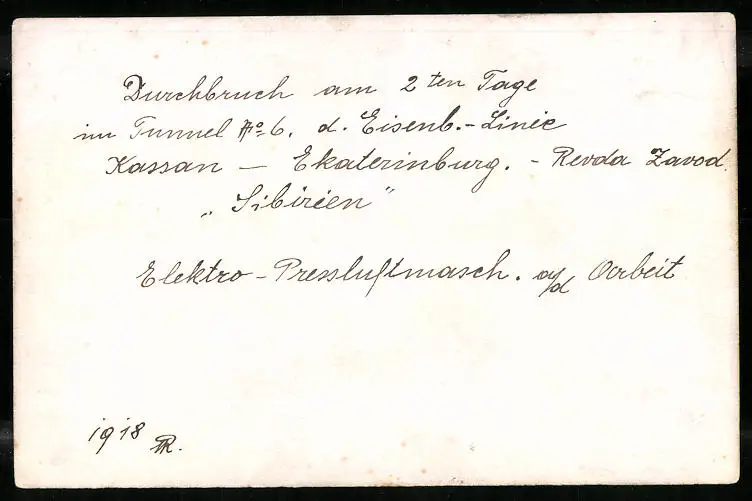 Durchbruch am 2ten Tage
im Tunnel No 6. d. Eisenb.-Linie
Kassan — Ekaterinburg. - Revda Zavod.
„Sibirien"
Elektro-Pressluftmasch. a/d Arbeit
1918